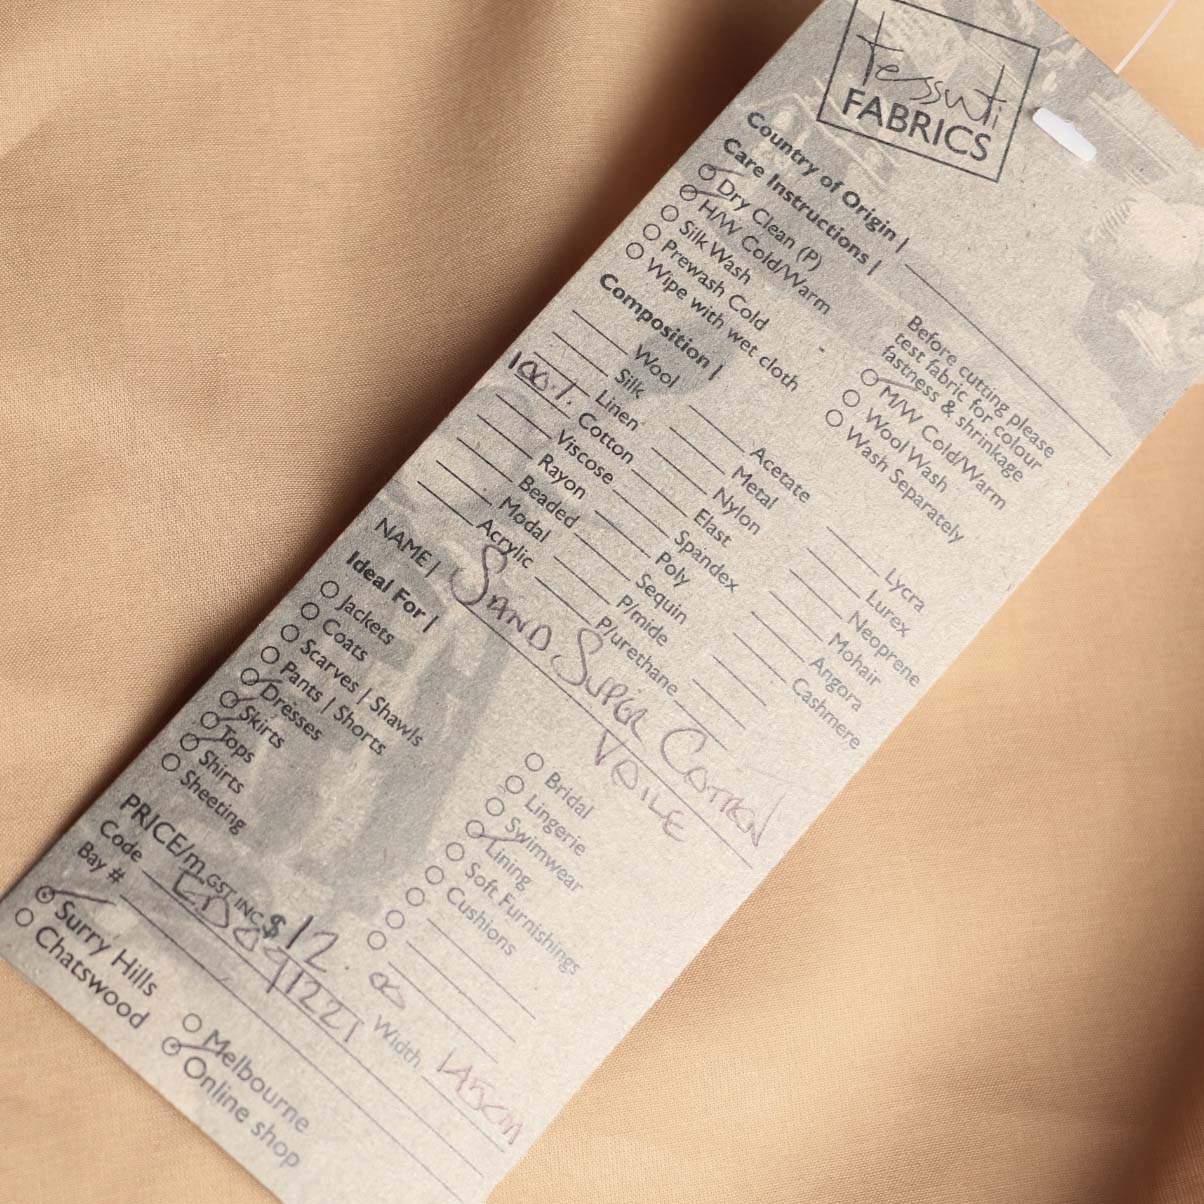 tessuti
FABRICS
Country of Origin |
Care Instructions |
Dry Clean (P)
H/W Cold/Warm
Silk Wash
Prewash Cold
Wipe with wet cloth
Before cutting please
test fabric for colour
fastness & shrinkage
M/W Cold/Warm
Wool Wash
Wash Separately
Composition |
Wool
Silk
Linen
100% Cotton
Viscose
Rayon
Beaded
Modal
Acrylic
Acetate
Metal
Nylon
Elast
Spandex
Poly
Sequin
P/mide
P/urethane
Lycra
Lurex
Neoprene
Mohair
Angora
Cashmere
NAME | SAND SUPER COTTON
VOILE
Ideal For |
Jackets
Coats
Scarves | Shawls
Pants | Shorts
Dresses
Skirts
Tops
Shirts
Sheeting
Bridal
Lingerie
Swimwear
Lining
Soft Furnishings
Cushions
PRICE/m GST INC $12.00
Width 145cm
Code
Bay #
Surry Hills
Chatswood
Melbourne
Online shop